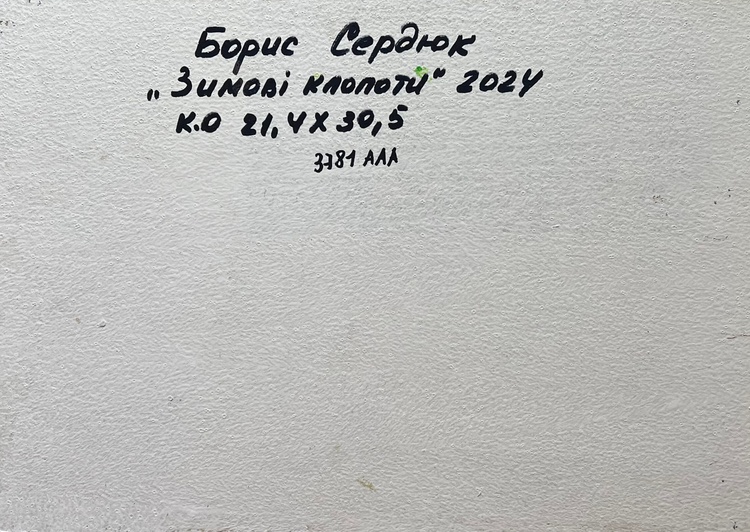 Борис Сердюк
„Зимові клопоти" 2024
К.О 21,4 X 30,5
3781 AAA